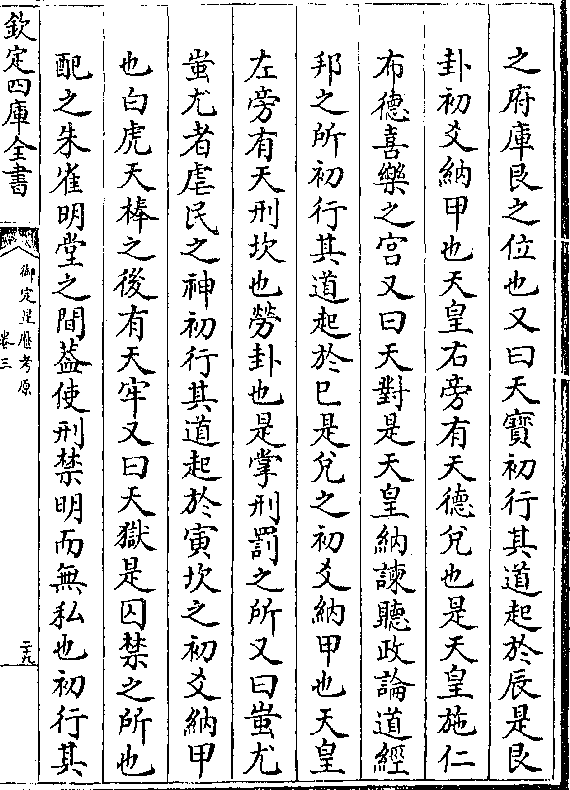 之府庫艮之位也又曰天寶初行其道起於辰是艮
卦初爻納甲也天皇右旁有天德兌也是天皇施仁
布德喜樂之宫又曰天對是天皇納諫聽政論道經
邦之所初行其道起於巳是兌之初爻納甲也天皇
左旁有天刑坎也勞卦也是掌刑罰之所又曰蚩尤
蚩尤者虐民之神初行其道起於寅坎之初爻納甲
也白虎天棒之後有天牢又曰天獄是囚禁之所也
配之朱雀明堂之間葢使刑禁明而無私也初行其
欽定四庫全書
御定星歷考原
卷三
二十九